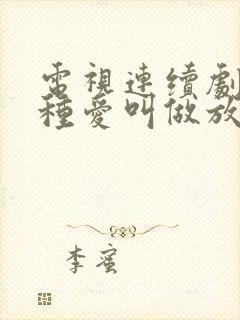 電視連續劇
種愛叫做放
李蜜